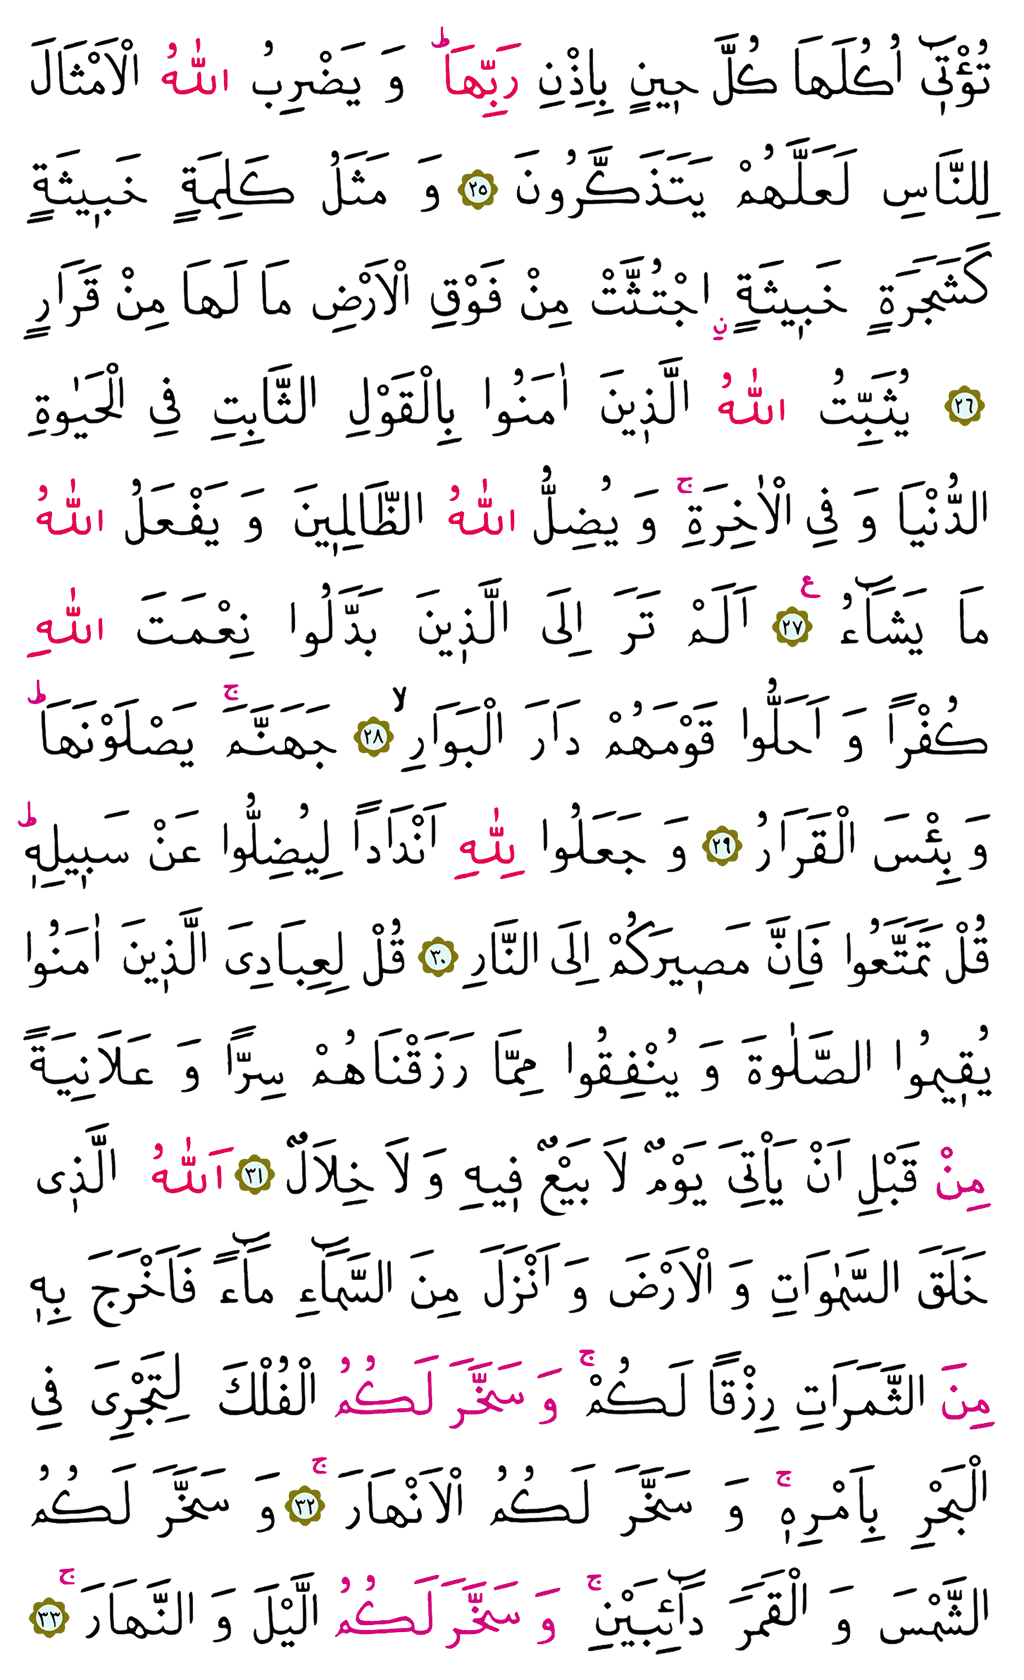 تُؤْتٖٓى اُكُلَهَا كُلَّ حٖينٍ بِاِذْنِ رَبِّهَاؕ وَ يَضْرِبُ اللّٰهُ الْاَمْثَالَ
لِلنَّاسِ لَعَلَّهُمْ يَتَذَكَّرُونَ ﴿٢٥﴾ وَ مَثَلُ كَلِمَةٍ خَبٖيثَةٍ
كَشَجَرَةٍ خَبٖيثَةٍۨ اجْتُثَّتْ مِنْ فَوْقِ الْاَرْضِ مَا لَهَا مِنْ قَرَارٍ
﴿٢٦﴾ يُثَبِّتُ اللّٰهُ الَّذٖينَ اٰمَنُوا بِالْقَوْلِ الثَّابِتِ فِى الْحَيٰوةِ
الدُّنْيَا وَ فِى الْاٰخِرَةِۚ وَ يُضِلُّ اللّٰهُ الظَّالِمٖينَ وَ يَفْعَلُ اللّٰهُ
مَا يَشَٓاءُ ع ﴿٢٧﴾ اَلَمْ تَرَ اِلَى الَّذٖينَ بَدَّلُوا نِعْمَتَ اللّٰهِ
كُفْرًا وَ اَحَلُّوا قَوْمَهُمْ دَارَ الْبَوَارِۙ ﴿٢٨﴾ جَهَنَّمَۚ يَصْلَوْنَهَاؕ
وَ بِئْسَ الْقَرَارُ ﴿٢٩﴾ وَ جَعَلُوا لِلّٰهِ اَنْدَادًا لِيُضِلُّوا عَنْ سَبٖيلِهٖؕ
قُلْ تَمَتَّعُوا فَاِنَّ مَصٖيرَكُمْ اِلَى النَّارِ ﴿٣٠﴾ قُلْ لِعِبَادِىَ الَّذٖينَ اٰمَنُوا
يُقٖيمُوا الصَّلٰوةَ وَ يُنْفِقُوا مِمَّا رَزَقْنَاهُمْ سِرًّا وَ عَلَانِيَةً
مِنْ قَبْلِ اَنْ يَاْتِىَ يَوْمٌ لَا بَيْعٌ فٖيهِ وَ لَا خِلَالٌ ﴿٣١﴾ اَللّٰهُ الَّذٖى
خَلَقَ السَّمٰوَاتِ وَ الْاَرْضَ وَ اَنْزَلَ مِنَ السَّمَٓاءِ مَٓاءً فَاَخْرَجَ بِهٖ
مِنَ الثَّمَرَاتِ رِزْقًا لَكُمْۚ وَ سَخَّرَ لَكُمُ الْفُلْكَ لِتَجْرِىَ فِى
الْبَحْرِ بِاَمْرِهٖۚ وَ سَخَّرَ لَكُمُ الْاَنْهَارَۚ ﴿٣٢﴾ وَ سَخَّرَ لَكُمُ
الشَّمْسَ وَ الْقَمَرَ دَٓائِبَيْنِۚ وَ سَخَّرَ لَكُمُ الَّيْلَ وَ النَّهَارَۚ ﴿٣٣﴾